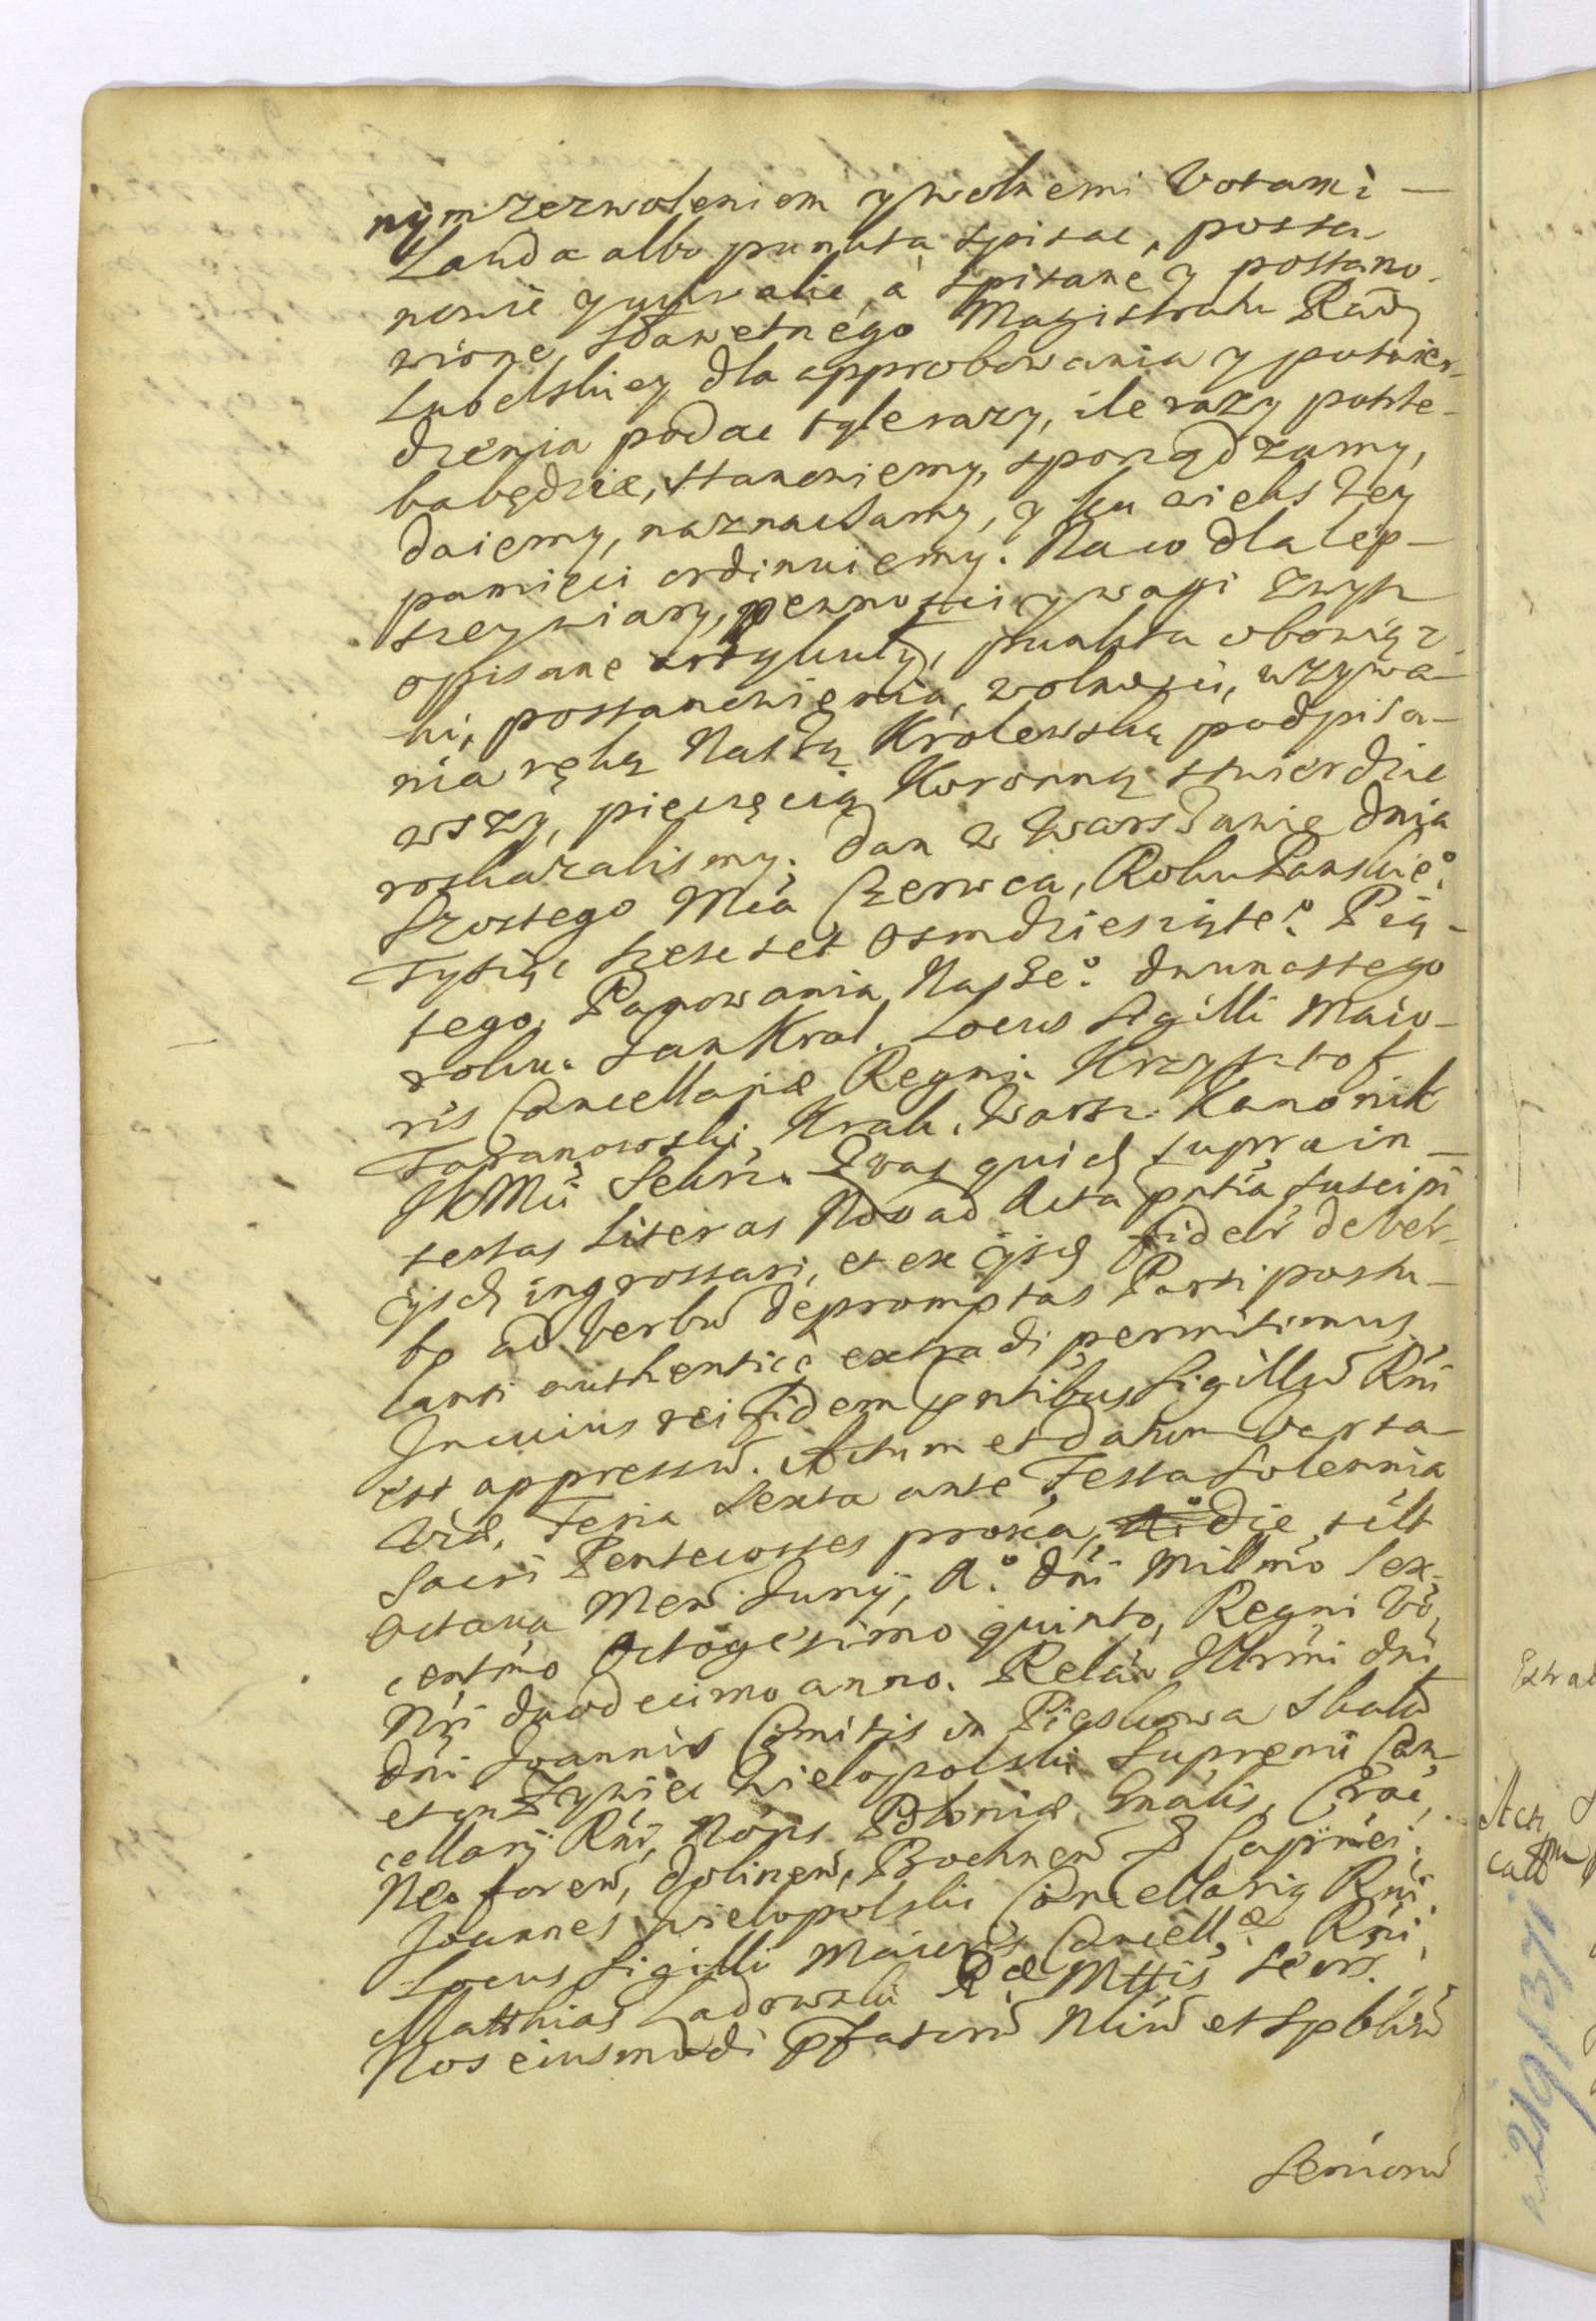 nym zezwoleniem y wolnemi Votami —
Lauda albo punkta spisać, posta-
nowić y uchwalić, a spisane y postano-
wione, Sławetnego Magistratu Rady
Lubelskiey dla approbowania y potwier-
dzenia podać tyle razy, ile razy potrze-
ba będzie, stanowiemy, sporządzamy,
daiemy, naznaczamy, y ku wiekszey
pamięci ordinuiemy. Na co dla lep-
szey wiary, pewności y wagi zwysz
opisane artykuły, punkta obowiąz-
ki, postanowienia, wolności, uzywa-
nia ręką Naszą Krolewską podpisa-
wszy, pieczęcią Koronną stwierdzić
roskazalismy. Dan w Warszawie dnia
Szostego Mca Czerwca, Roku Panskie°:
Tysiąc szesc set Osmdziesiąte°: Pią-
tego, Panowania Nasze°: dwunastego
roku. Jan Krol. Locus Sigilli Maio-
ris Cancellariæ Regni. Krzysztof
Taranowski, Krak. Warsz. Kanonik
JKMci Sekr. Quas quid supra in-
sertas Literas Nos ad Acta pntia suscipi
ijsd ingrossari, et ex ijsd fideli debet-
bq ad verbu depromptas Parti postu-
lanti authentice extradi permisimus.
In cuius rei fidem pntibus Sigillu Rni
est appressu. Actum et datum Varsa-
viæ, Feria Sexta ante Festa Solennia
Sacri Pentecostes proxa, die, silt
Octava Men Junij, A°: Dni Millmo sex-
centmo Octogesimo quinto, Regni Vo
Nri duodecimo anno. Relao Illrmi Dni
Dni Joannis Comitis in Pieskowa Skala
et in Zywiec Wielopolski Supremi Can-
cellarij Rni, Polonię Gnalis, Crac,
Neoforen, Dolinen, Bochnen & Capnei.
Joannes Wielopolski Cancellariq Rni
Locus Sigilli Maioris Cancell.æ Rni
Matthias Ladowski R.æ Mttis Secrs.
Nos eiusmodi Pfatoru et Spbliu
Senioru
Extrad
Act
219/1371